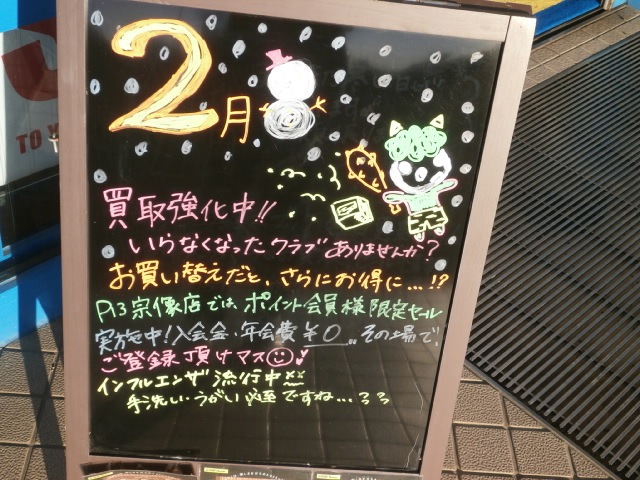 2月
買取強化中!!
いらなくなったクラブありませんか?
お買い替えだと、さらにお得に...!?
P13宗像店では、ポイント会員様限定セール
実施中!入会金・年会費¥0...その場で、
ご登録頂けマス
インフルエンザ流行中
手洗い・うがい必至ですね...
TO